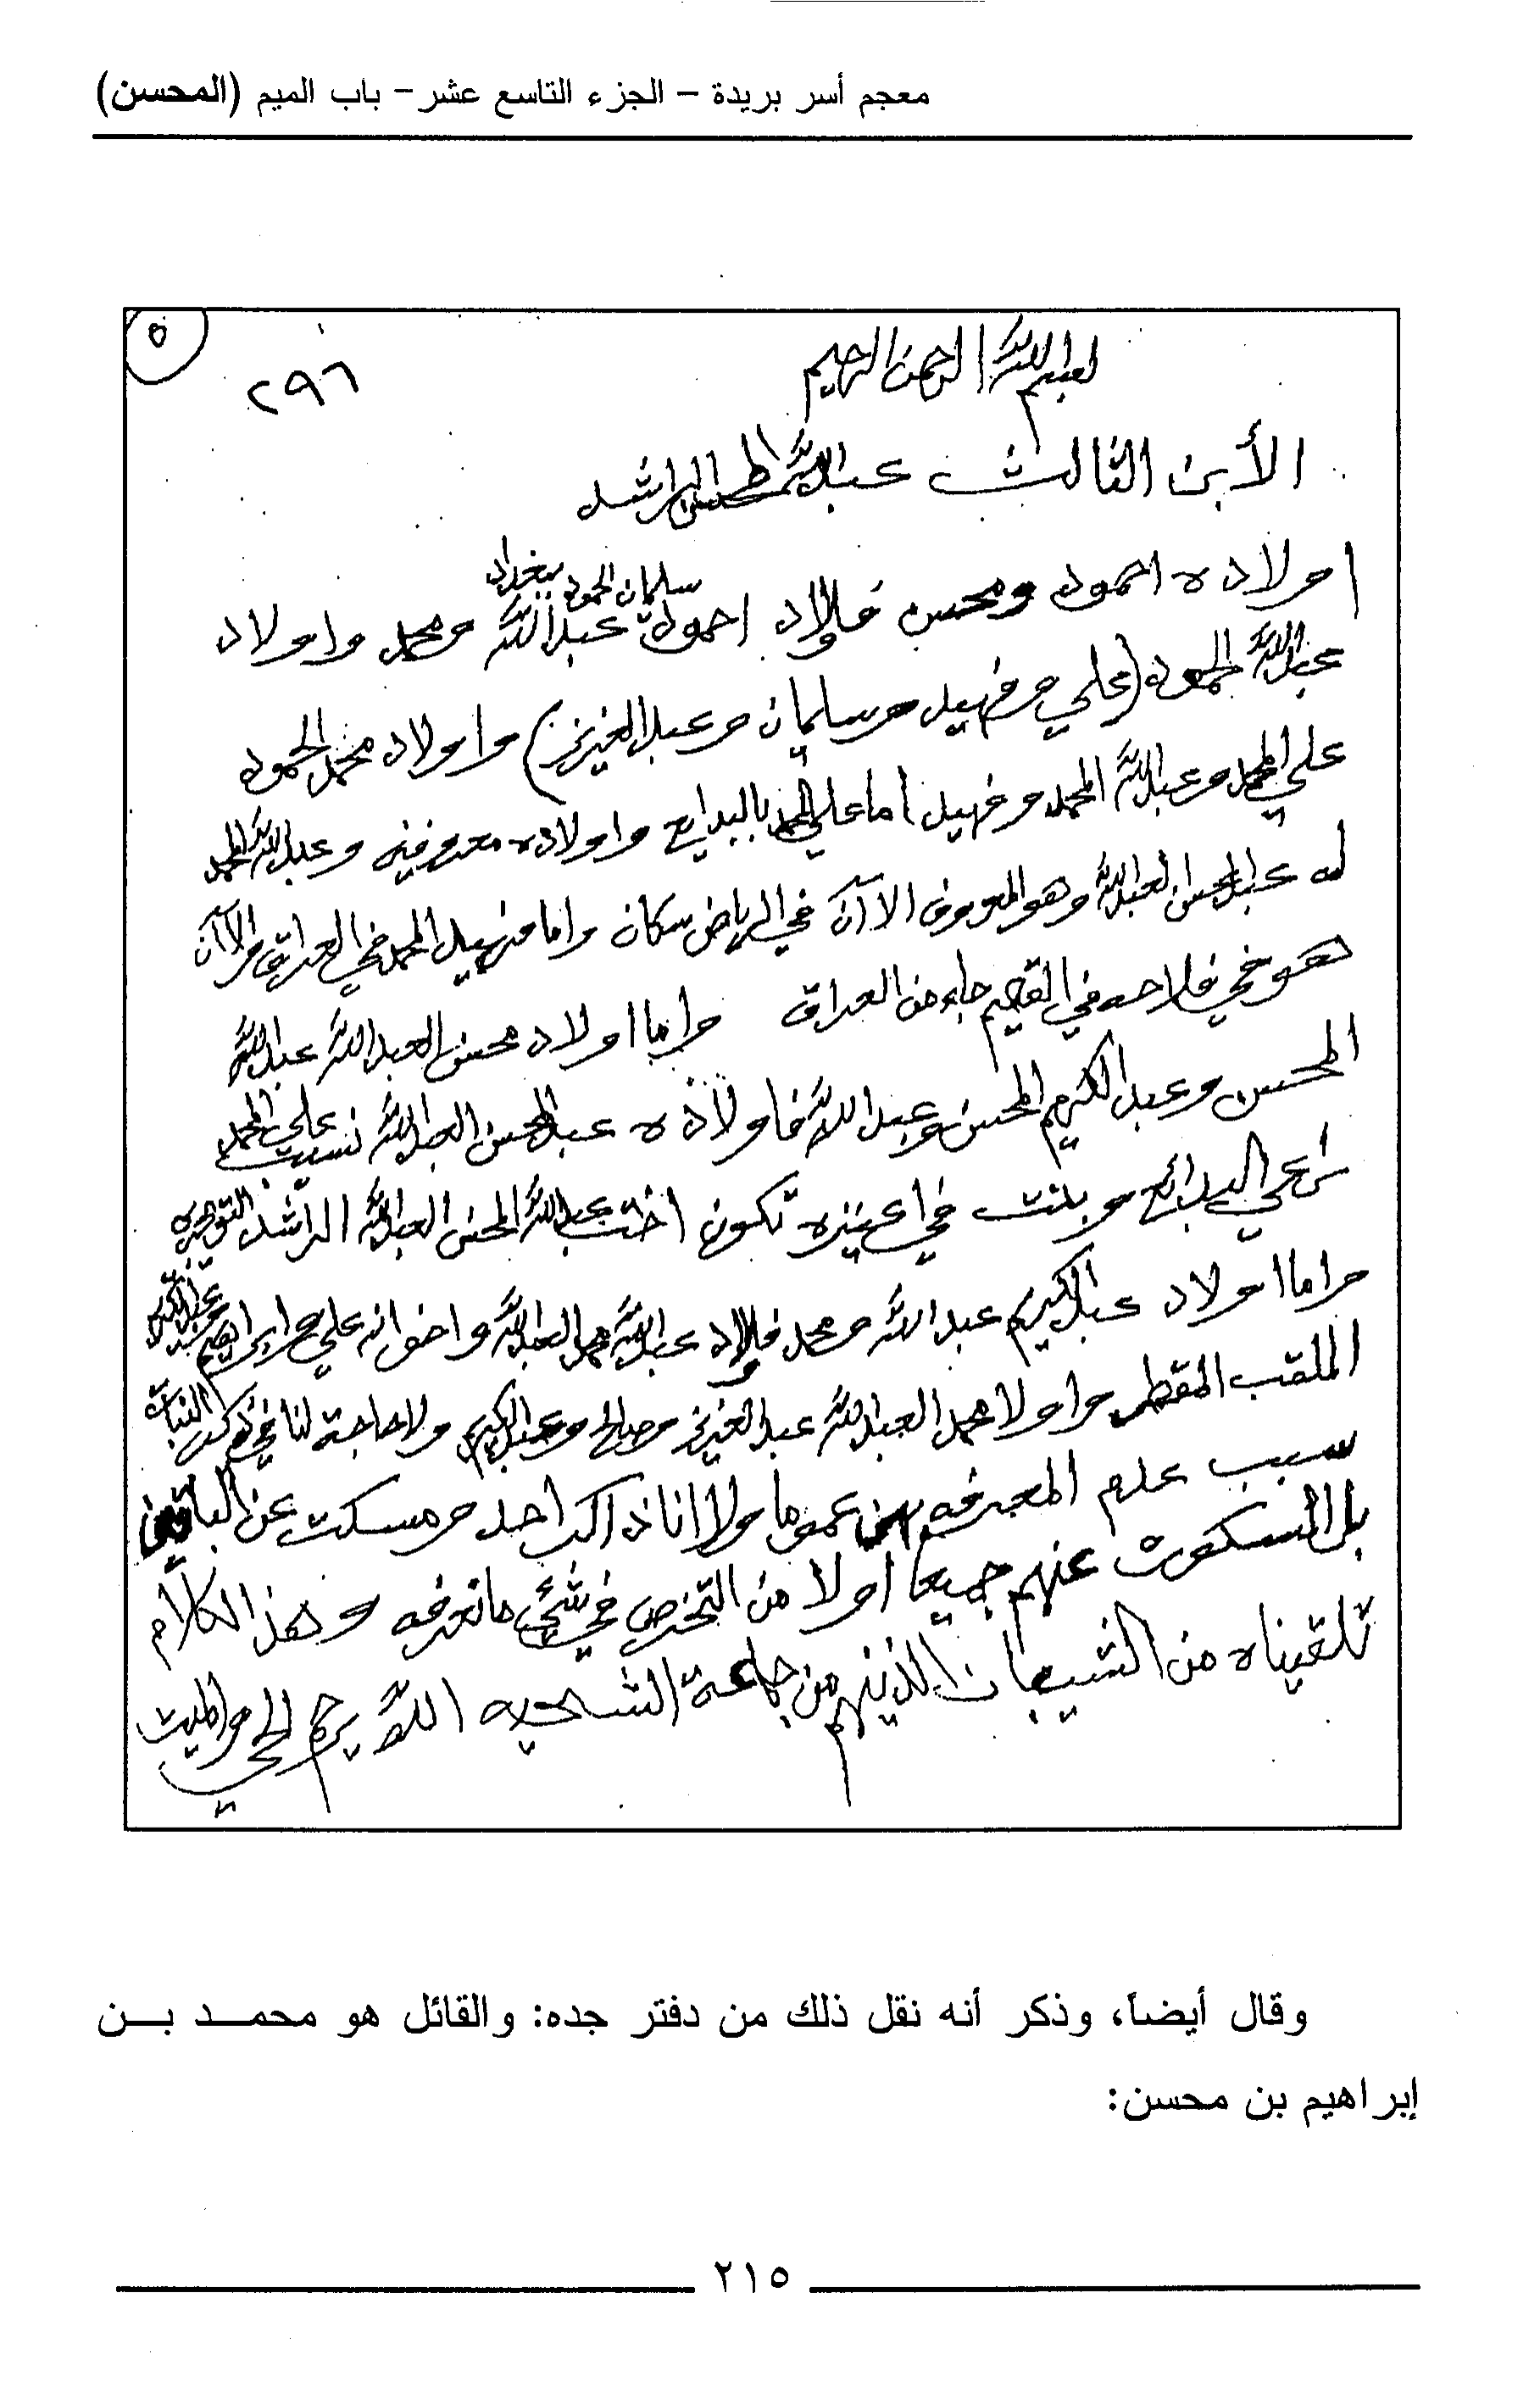 معجم أسر بريدة – الجزء التاسع عشر – باب الميم (المحسن)
٥
٢٩٦
بسم الله الرحمن الرحيم
الأبن الثالث عبدالله المحسن الراشد
سلمان الحمود ببغداد
اولاده احمود ومحسن فاولاد احمود عبدالله ومحمد واولاد
عبدالله الحمود (علي وفهيد وسليمان وعبدالعزيز) واولاد محمد الحمود
علي المحمد وعبدالله المحمد وفهيد اما علي المحمد بالبدايع واولاده معروفيه وعبدالله المحمد
له عبدالمحسن العبدالله وهو المعروف الاآن في الرياض سكان واما فهيد المحمد في العراق والاآن
هو في فلاحه في القصيم جاء من العراق واما اولاد محسن العبدالله عبدالله
المحسن وعبدالكريم المحسن وعبدالله فاولاده عبدالمحسن العبدالله نسيب علي المحمد
راعي البدائع وبنت في اعنيزه تكون اخت عبدالله المحسن العبدالله الراشد التويجري
واما اولاد عبدالكريم عبدالله ومحمد فاولاد عبدالله محمد العبدالله واخوانه علي وابراهيم عبدالكريم
الملقب المقطر واولاد محمد العبدالله عبدالعزيز وصالح وعبدالكريم ولا حاجة لنا في ذكر البنات
سبب علم المعرفه بهن عموما ولا انا ذاكر احد ومسكت عن الباقين
بل السكوت عنهم جميعا اولا من التخرص في شئي ما نعرفه وهذا الكلام
تلقيناه من الشيبان الذينهم من جماعة الشحيه الله يرحم الحي والميت
وقال أيضاً، وذكر أنه نقل ذلك من دفتر جده: والقائل هو محمد بن
إبراهيم بن محسن:
٢١٥